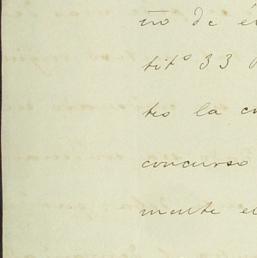 ño de é
titº 33
tes la c
concurso
mente e